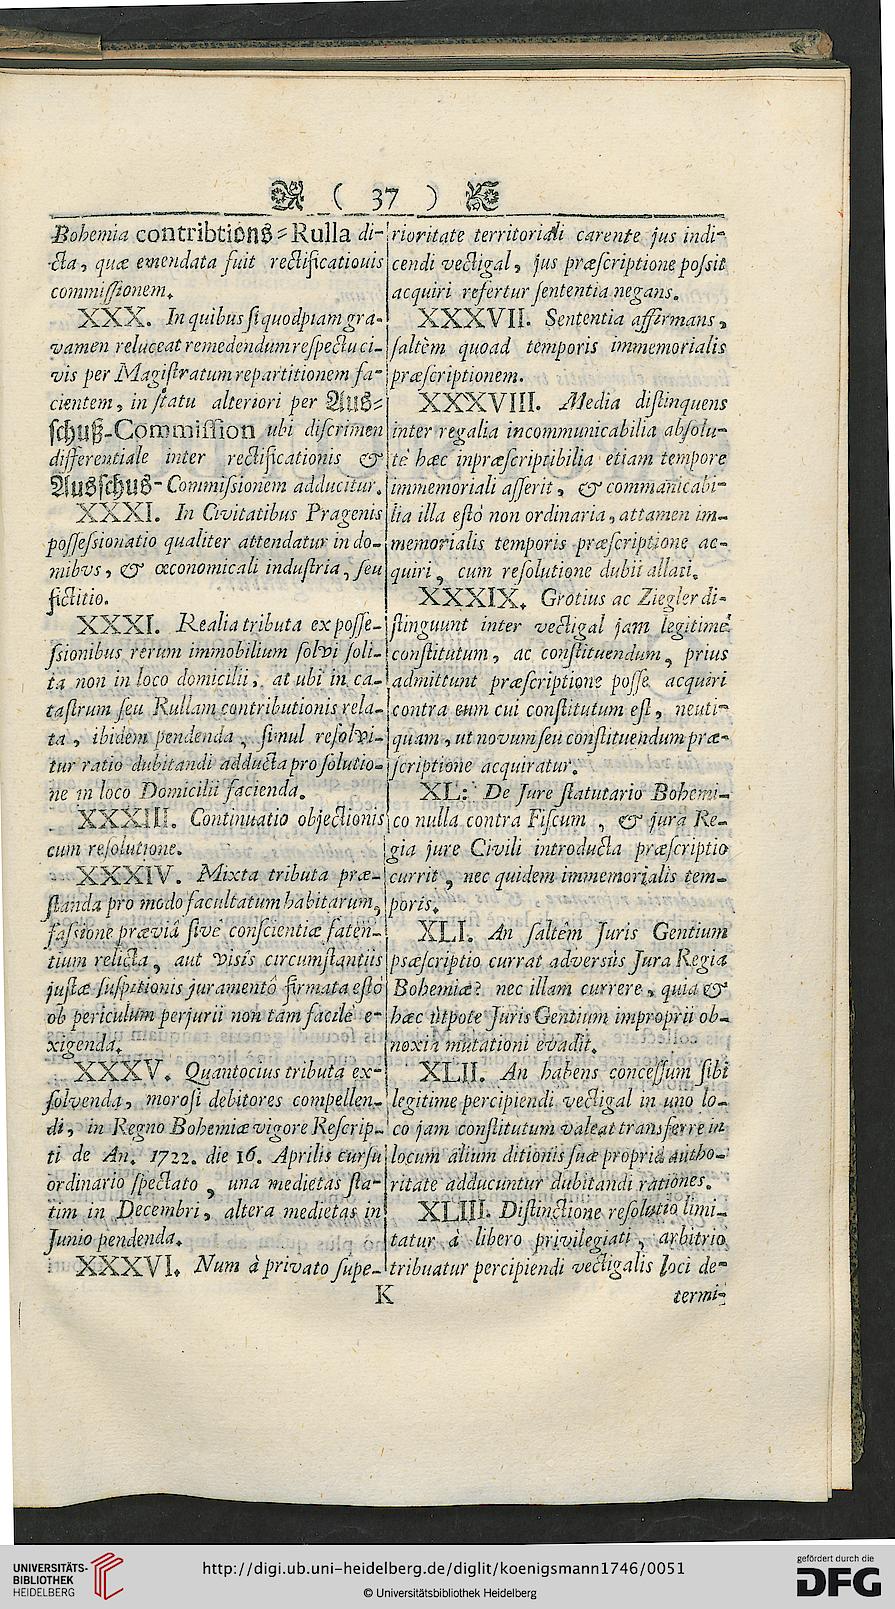 ( 37 )
Bohemia contribtions=Rulla di-
cta, quæ emendata fuit rectificationis
commissionem.
XXX. In quibus si quodpiam gra-
vamen reluceat remedendum respectu ci-
vis per Magistratum repartitionem fa-
cientem, in statu alteriori per Aus=
schuß-Commission ubi discrimen
differentiale inter rectificationis &
Ausschus-Commissionem adducitur.
XXXI. In Civitatibus Pragenis
possessionatio qualiter attendatur in do-
mibvs, & œconomicali industria, seu
fictitio.
XXXI. Realia tributa ex posse-
ssionibus rerum immobilium solvi soli-
ta non in loco domicilii, at ubi in ca-
tastrum seu Rullam contributionis rela-
ta, ibidem pendenda, simul resolvi-
tur ratio dubitandi adducta pro solutio-
ne in loco Domicilii facienda.
XXXIII. Continuatio objectionis
cum resolutione.
XXXIV. Mixta tributa præ-
standa pro modo facultatum habitarum,
fassione præviâ sivè conscientiæ faten-
tium relicta, aut visis circumstantiis
justæ suspitionis juramentô firmata estô
ob periculum perjurii non tam facilè e-
xigenda.
XXXV. Quantocius tributa ex-
solvenda, morosi debitores compellen-
di, in Regno Bohemiæ vigore Rescrip-
ti de An. 1722. die 16. Aprilis cursu
ordinario spectato, una medietas sta-
tim in Decembri, altera medietas in
Junio pendenda.
XXXVI. Num à privato supe-
rioritate territoriali carente jus indi-
cendi vectigal, jus præscriptione possit
acquiri refertur sententia negans.
XXXVII. Sententia affirmans,
saltèm quoad temporis immemorialis
præscriptionem.
XXXVIII. Media distinquens
inter regalia incommunicabilia absolu-
tè hæc inpræscriptibilia etiam tempore
immemoriali asserit, & communicabi-
lia illa estò non ordinaria, attamen im-
memorialis temporis præscriptione ac-
quiri, cum resolutione dubii allati.
XXXIX. Grotius ac Ziegler di-
stinguunt inter vectigal jam legitimè
constitutum, ac constituendum, prius
admittunt præscriptione posse acquiri
contra eum cui constitutum est, neuti-
quam, ut novum seu constituendum præ-
scriptione acquiratur.
XL. De Jure statutario Bohemi-
co nulla contra Fiscum, & jura Re-
gia jure Civili introducta præscriptio
currit, nec quidem immemorialis tem-
poris.
XLI. An saltem Juris Gentium
psæscriptio currat adversùs Jura Regia
Bohemiæ? nec illam currere, quia &
hæc ùtpote Juris Gentium improprii ob-
noxia mutationi evadit.
XLII. An habens concessum sibi
legitime percipiendi vectigal in uno lo-
co jam constitutum valeat transferre in
locum alium ditionis suæ propriâ autho-
ritate adducuntur dubitandi rationes.
XLIII. Distinctione resolutio limi-
tatur à libero privilegiati, arbitrio
tribuatur percipiendi vectigalis loci de-
K
termi-
UNIVERSITÄTS-
BIBLIOTHEK
HEIDELBERG
http://digi.ub.uni-heidelberg.de/diglit/koenigsmann1746/0051
© Universitätsbibliothek Heidelberg
gefördert durch die
DFG